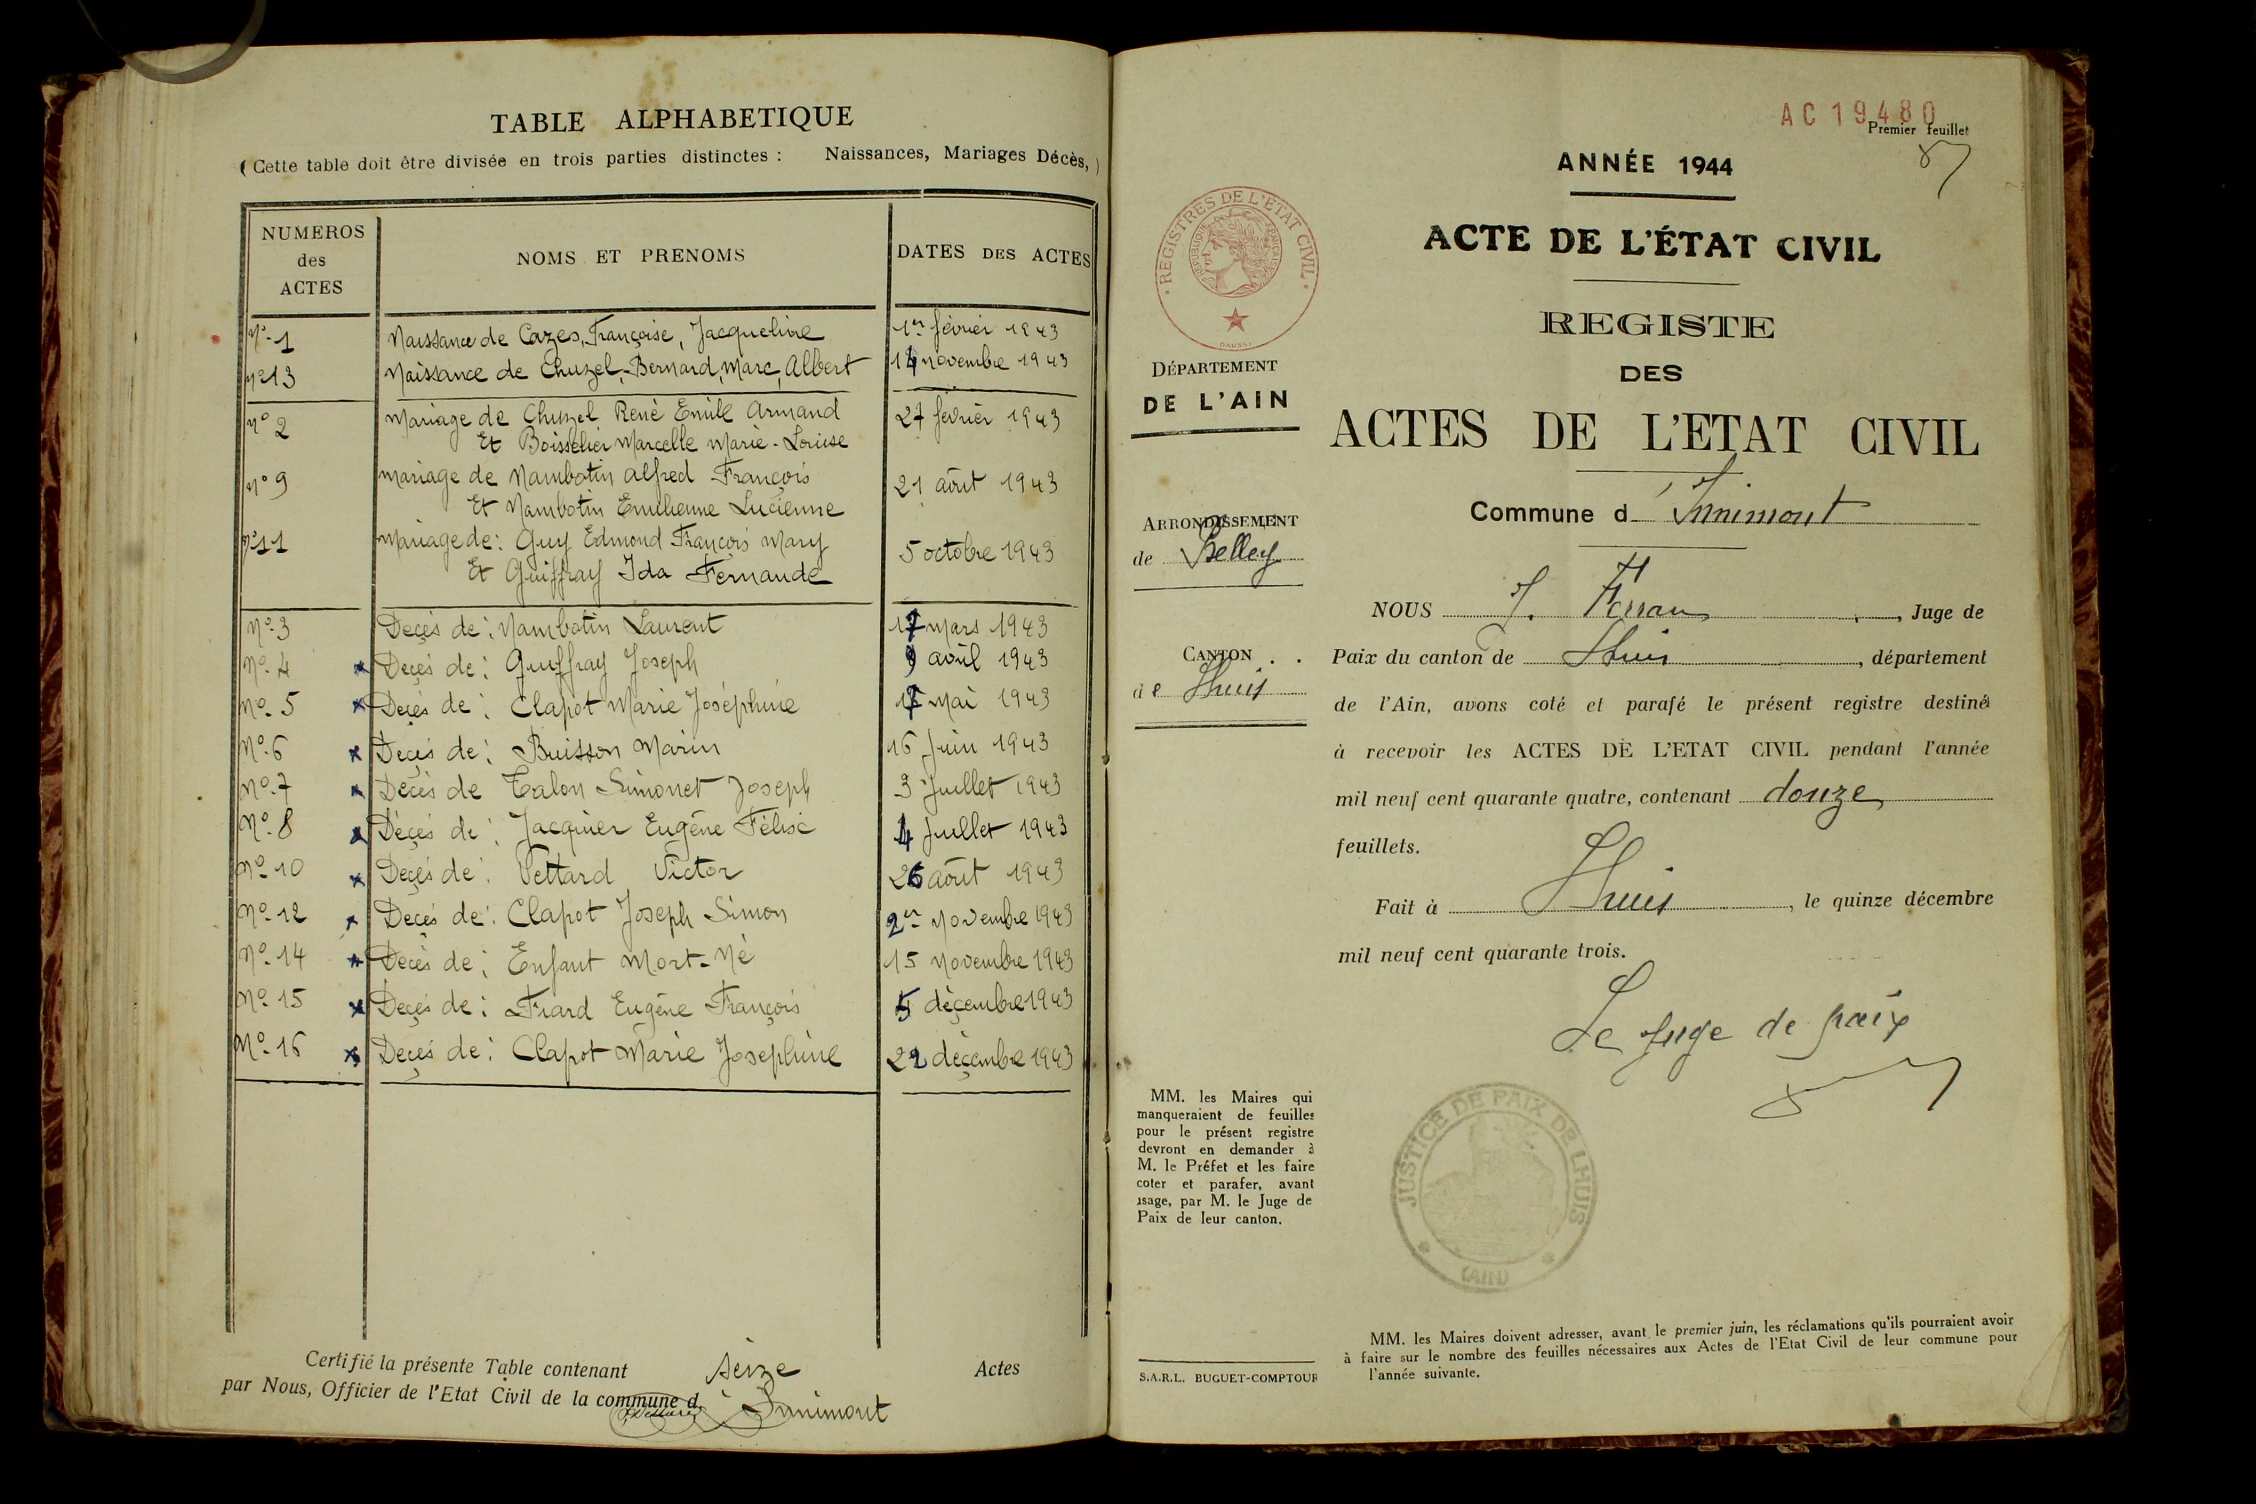 TABLE ALPHABETIQUE
(Cette table doit être divisée en trois parties distinctes : Naissances, Mariages Décès, )
NUMEROS des ACTES
NOMS ET PRENOMS
DATES DES ACTES
N° 1 Naissance de Cazes, Françoise, Jacqueline 1er février 1943
n° 13 Naissance de Chuzel, Bernard, Marc, Albert 14 novembre 1943
n° 2 Mariage de Chuzel René Emile Armand 27 février 1943
Et Boisselier Marcelle Marie-Louise
n° 9 mariage de Nambotin Alfred François 21 août 1943
Et Nambotin Emilienne Lucienne
n° 11 Mariage de : Guy Edmond François Mary 5 octobre 1943
Et Guiffray Ida Fernande
N° 3 Décès de : Nambotin Laurent 17 mars 1943
N° 4 Décès de : Guiffray Joseph 9 avril 1943
N° 5 Décès de : Clapot Marie Joséphine Mai 1943
N° 6 Décès de : Buisson Marin 16 Juin 1943
N° 7 Décès de Talon Simonet Joseph 3 Juillet 1943
N° 8 Décès de : Jacquier Eugène Félix 4 Juillet 1943
N° 10 Décès de : Vettard Victor 26 août 1943
N° 12 Décès de : Clapot Joseph Simon 2er Novembre 1943
N° 14 Décès de : Enfant Mort-Né 15 Novembre 1943
N° 15 Décès de : Fiard Eugène François 5 décembre 1943
N° 16 Décès de : Clapot Marie Josephine 22 décembre 1943
Certifié la présente Table contenant seize Actes
par Nous, Officier de l'Etat Civil de la commune d' Innimont
AC 19480
Premier feuillet
ANNÉE 1944
ACTE DE L'ÉTAT CIVIL
REGISTRES DE L'ETAT CIVIL
REPUBLIQUE FRANCAISE
REGISTE
DES
ACTES DE L'ETAT CIVIL
DÉPARTEMENT
DE L'AIN
Commune d' Innimont
ARRONDISSEMENT
de Belley
NOUS J. Ferran, Juge de
CANTON . .
de Lhuis
Paix du canton de Lhuis, département
de l'Ain, avons coté et parafé le présent registre destiné
à recevoir les ACTES DE L'ETAT CIVIL pendant l'année
mil neuf cent quarante quatre, contenant douze
feuillets.
Fait à Lhuis, le quinze décembre
mil neuf cent quarante trois.
Le Juge de paix
JUSTICE DE PAIX DE LHUIS
(AIN)
MM. les Maires qui
manqueraient de feuilles
pour le présent registre
devront en demander à
M. le Préfet et les faire
coter et parafer, avant
usage, par M. le Juge de
Paix de leur canton.
S.A.R.L. BUGUET-COMPTOUR
MM. les Maires doivent adresser, avant le premier juin, les réclamations qu'ils pourraient avoir
à faire sur le nombre des feuilles nécessaires aux Actes de l'Etat Civil de leur commune pour
l'année suivante.